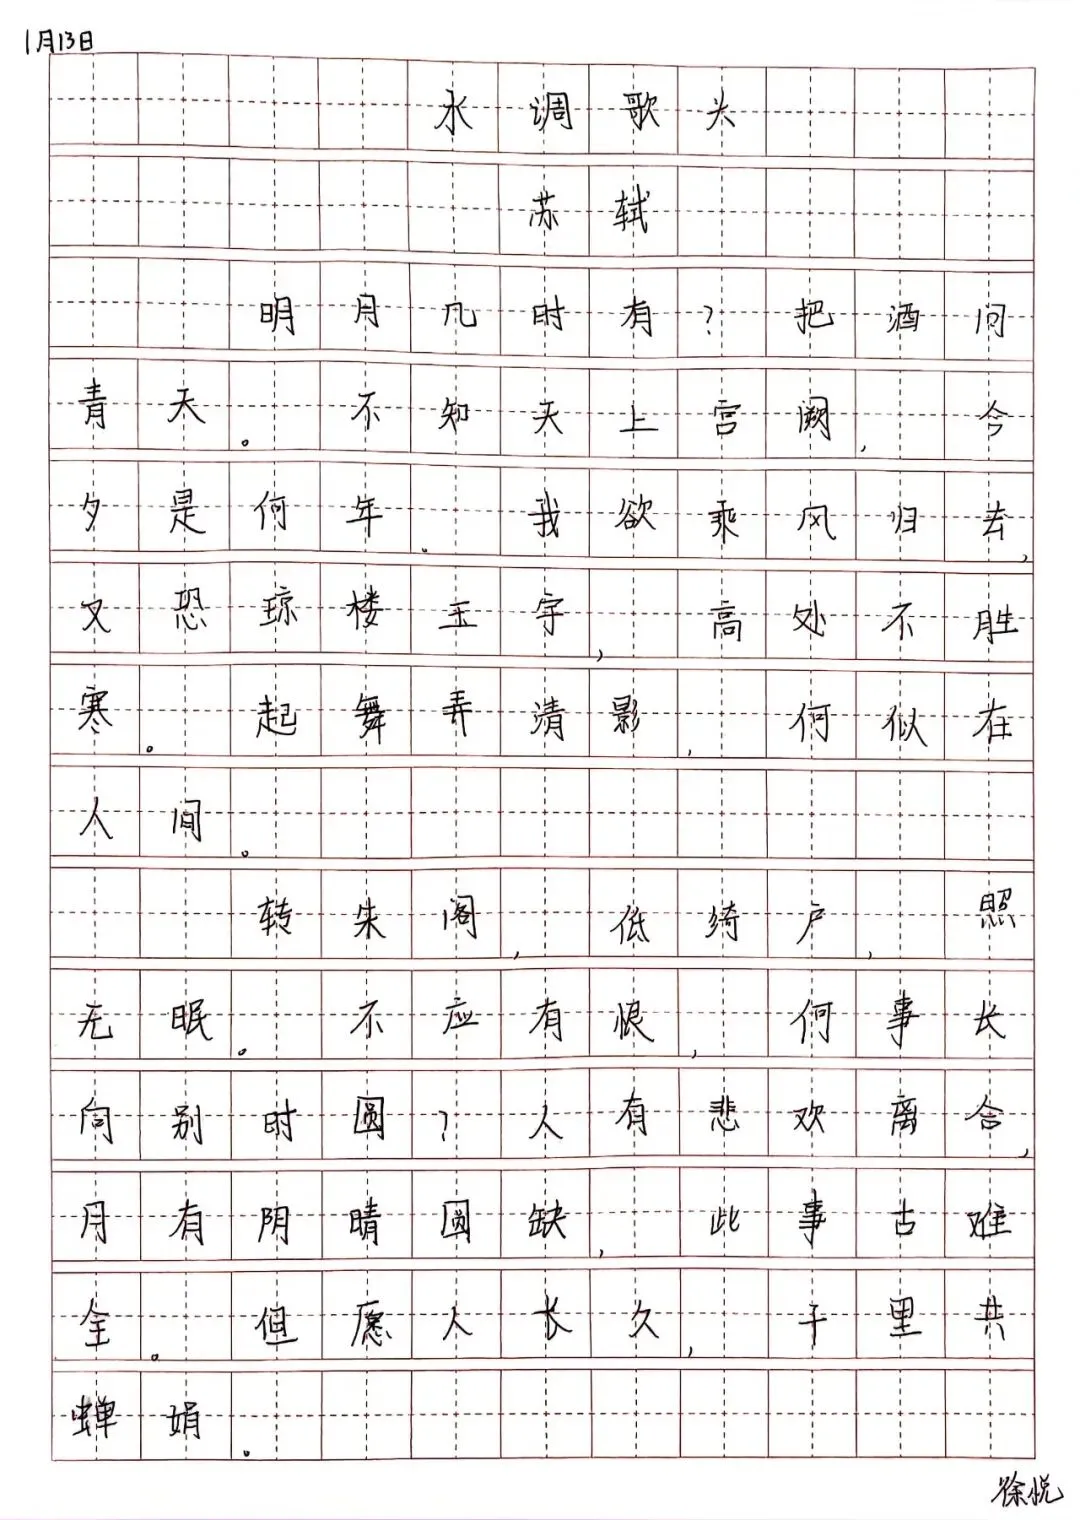 1月13日
水调歌头
苏轼
明月几时有?把酒问
青天。不知天上宫阙,今
夕是何年。我欲乘风归去,
又恐琼楼玉宇,高处不胜
寒。起舞弄清影,何似在
人间。
转朱阁,低绮户,照
无眠。不应有恨,何事长
向别时圆?人有悲欢离合,
月有阴晴圆缺,此事古难
全。但愿人长久,千里共
蝉娟。
徐悦